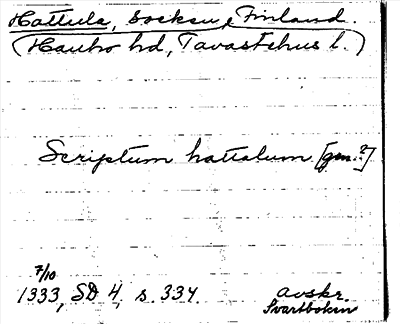 Hattula, socken, Finland.
(Hauho hd, Tavastehus l.)
Scriptum hattalum [gen.?]
7/10
1333, SD 4, s. 334.
avskr.
Svartboken